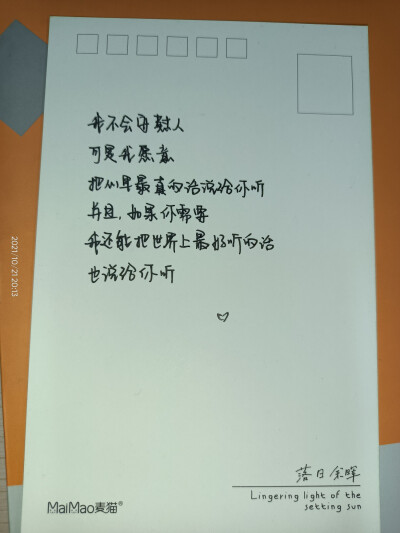 我不会人
可是我愿意
把最真的话说给你听
并且，如果你需要
我还能把世界上最好听的话
也说给你听
落日余晖
Lingering light of the
setting sun
MaiMao麦猫®
2021/10/21 20:13